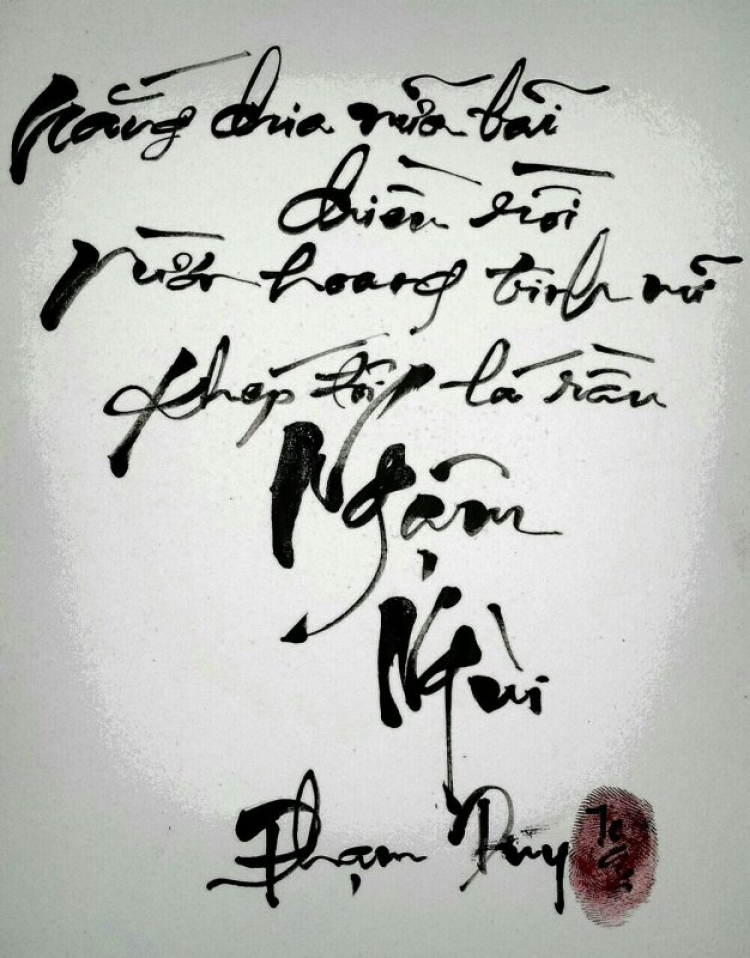 Nắng chia nửa bãi
chiều rồi
Vườn hoang trinh nữ
khép đôi lá rầu
Ngậm
Ngùi
Phạm Duy